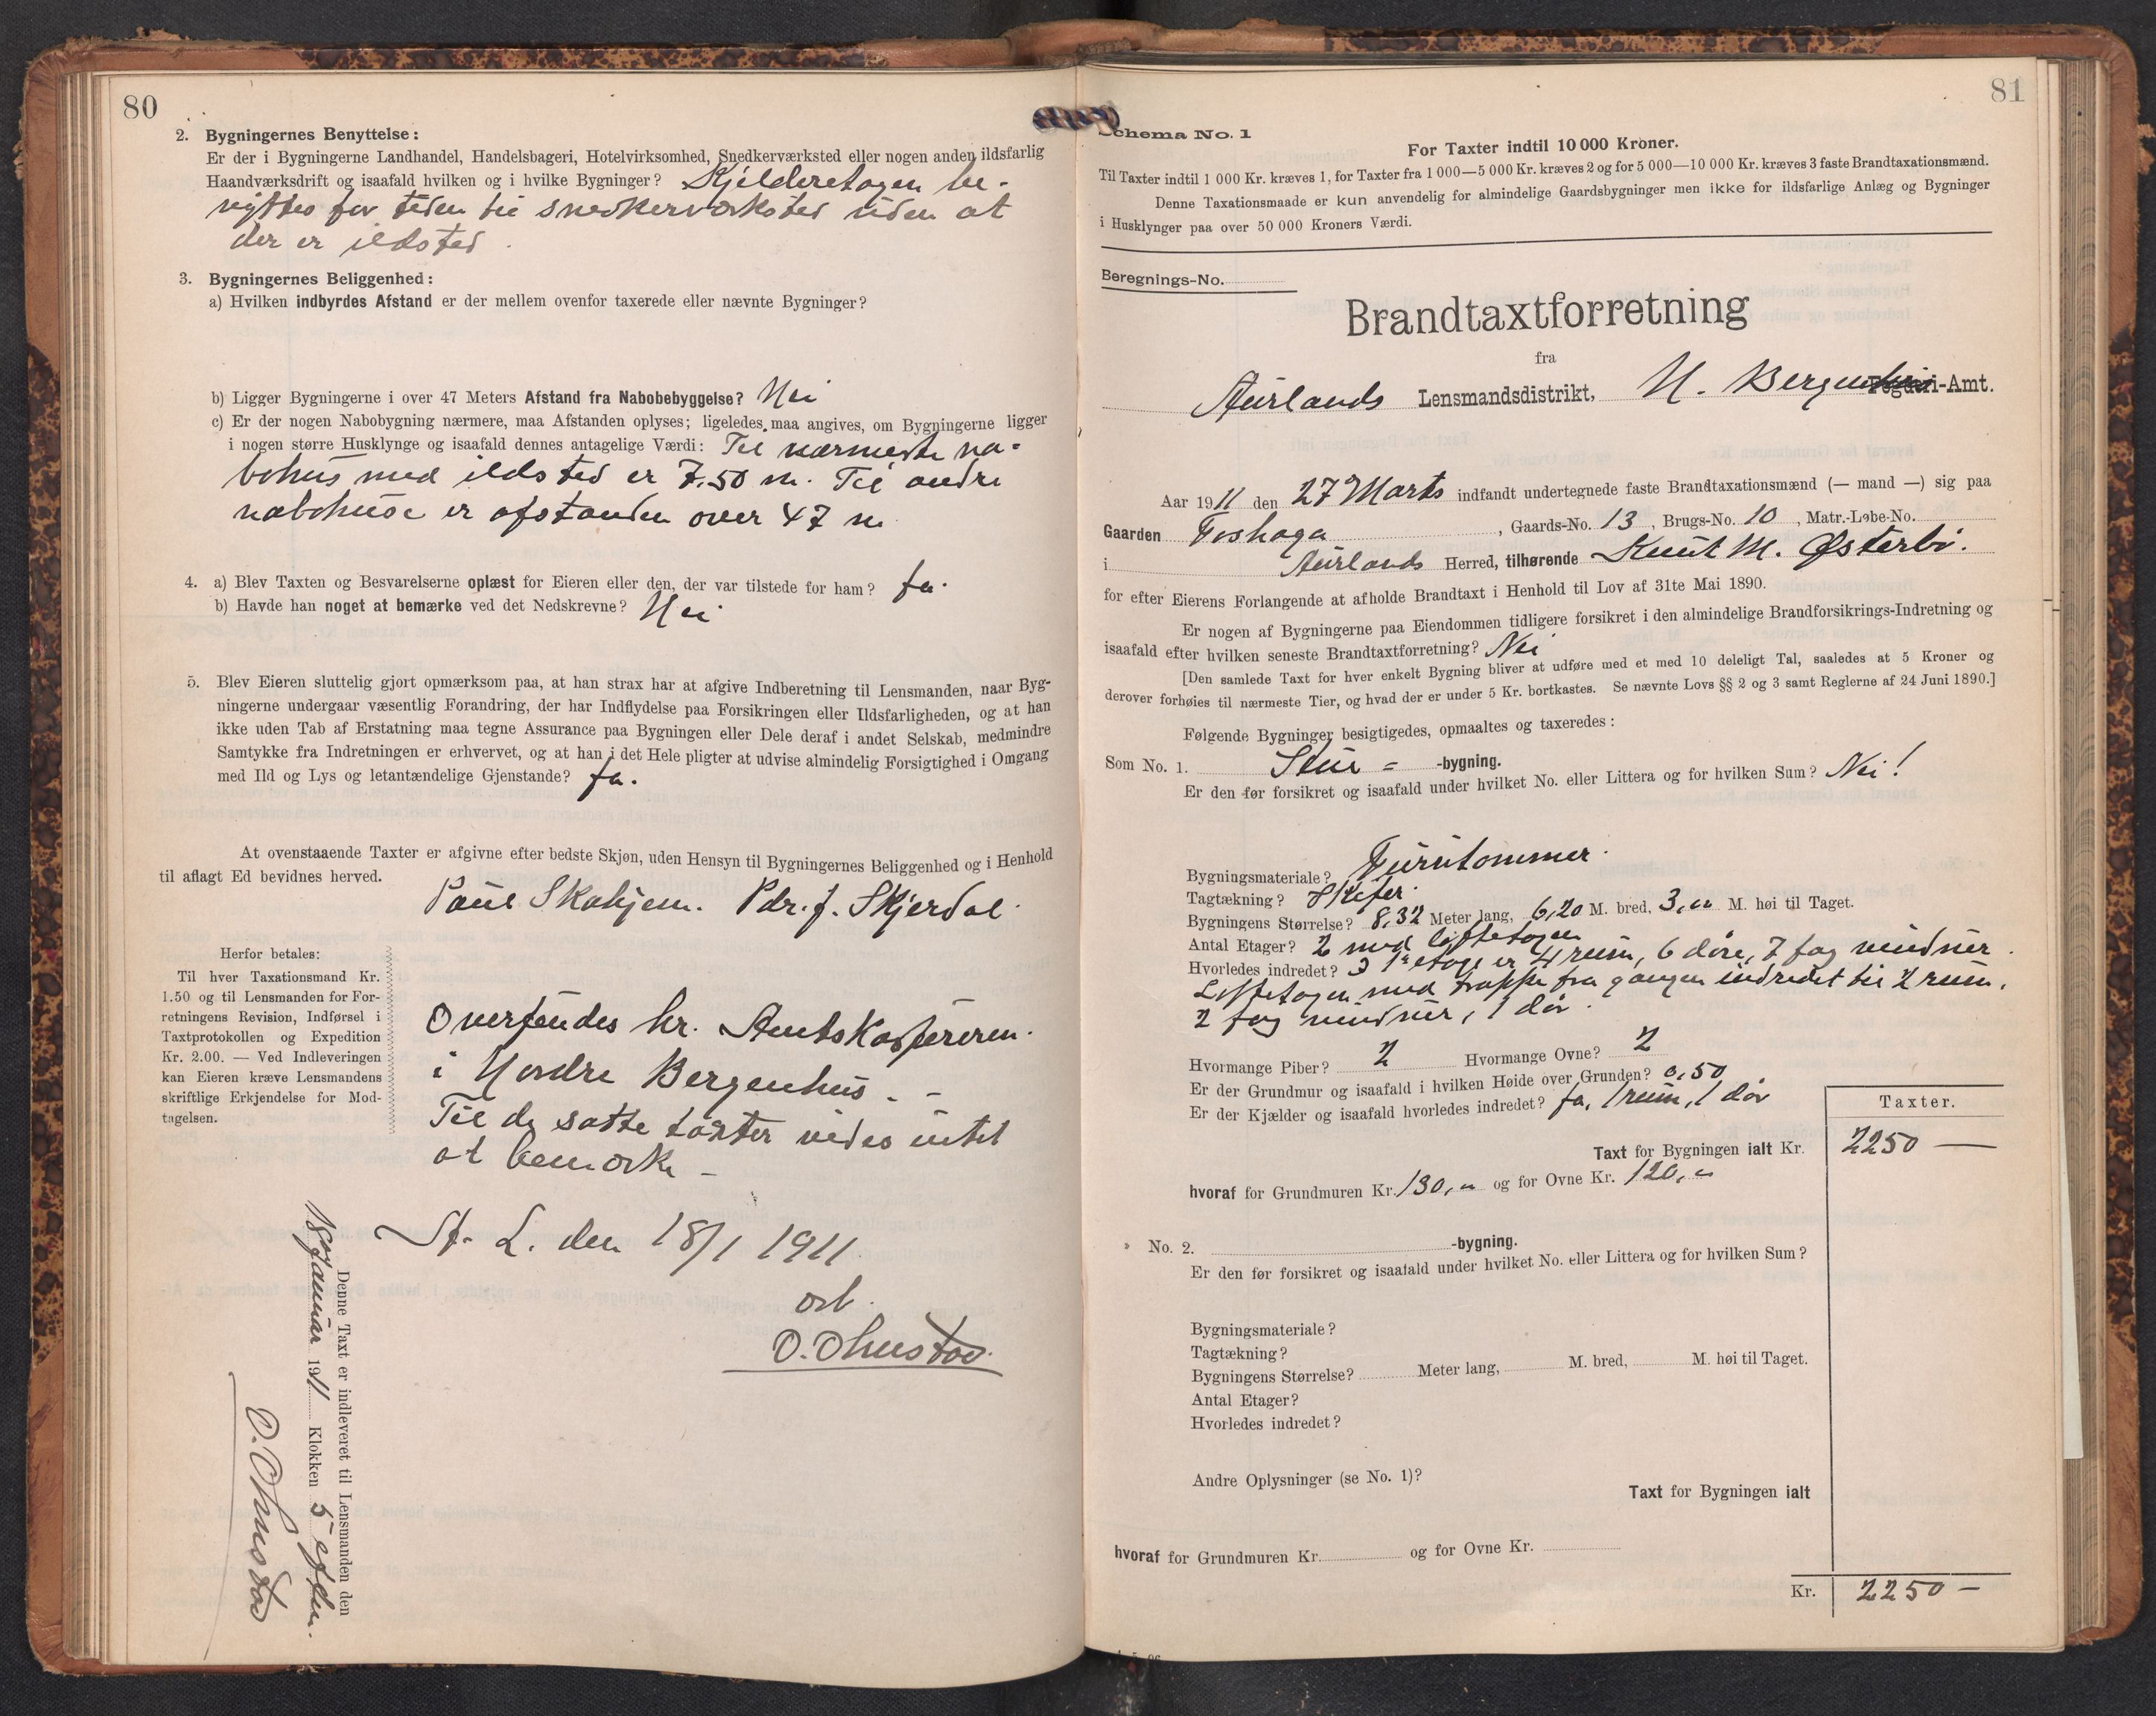 80
2. Bygningernes Benyttelse:
Er der i Bygningerne Landhandel, Handelsbageri, Hotelvirksomhed, Snedkerværksted eller nogen anden ildsfarlig
Haandværksdrift og isaafald hvilken og i hvilke Bygninger? Kjelderetagen be-
nyttes for tiden til snedkerværksted uden at
der er ildsted.
3. Bygningernes Beliggenhed:
a) Hvilken indbyrdes Afstand er der mellem ovenfor taxerede eller nævnte Bygninger?
b) Ligger Bygningerne i over 47 Meters Afstand fra Nabobebyggelse? Nei
c) Er der nogen Nabobygning nærmere, maa Afstanden oplyses; ligeledes maa angives, om Bygningerne ligger
i nogen større Husklynge og isaafald dennes antagelige Værdi: Til nærmeste na-
bohus med ildsted er 7.50 m. Til andre
nabohuse er afstanden over 47 m
4. a) Blev Taxten og Besvarelserne oplæst for Eieren eller den, der var tilstede for ham? Ja.
b) Havde han noget at bemærke ved det Nedskrevne? Nei
5. Blev Eieren sluttelig gjort opmærksom paa, at han strax har at afgive Indberetning til Lensmanden, naar Byg-
ningerne undergaar væsentlig Forandring, der har Indflydelse paa Forsikringen eller Ildsfarligheden, og at han
ikke uden Tab af Erstatning maa tegne Assurance paa Bygningen eller Dele deraf i andet Selskab, medmindre
Samtykke fra Indretningen er erhvervet, og at han i det Hele pligter at udvise almindelig Forsigtighed i Omgang
med Ild og Lys og letantændelige Gjenstande? Ja.
At ovenstaaende Taxter er afgivne efter bedste Skjøn, uden Hensyn til Bygningernes Beliggenhed og i Henhold
til aflagt Ed bevidnes herved.
Paul Skahjem. Pdr. J. Skjerdal.
Herfor betales:
Til hver Taxationsmand Kr.
1.50 og til Lensmanden for For-
retningens Revision, Indførsel i
Taxtprotokollen og Expedition
Kr. 2.00. — Ved Indleveringen
kan Eieren kræve Lensmandens
skriftlige Erkjendelse for Mod-
tagelsen.
Oversendes hr. Amtskassereren
i Nordre Bergenhus. -
Til de satte taxter vides intet
at bemærke -
St. L. den 18/1 1911.
O. Ohnstad.
Denne Taxt er indleveret til Lensmanden den
18 Januar 1911 Klokken 5 efterm.
O. Ohnstad
81
Schema No. 1
For Taxter indtil 10 000 Kroner.
Til Taxter indtil 1 000 Kr. kræves 1, for Taxter fra 1 000—5 000 Kr. kræves 2 og for 5 000—10 000 Kr. kræves 3 faste Brandtaxationsmænd.
Denne Taxationsmaade er kun anvendelig for almindelige Gaardsbygninger men ikke for ildsfarlige Anlæg og Bygninger
i Husklynger paa over 50 000 Kroners Værdi.
Beregnings-No.
Brandtaxtforretning
fra
Aurlands Lensmandsdistrikt, N. Bergenhus Fogderi-Amt.
Aar 1911 den 27 Marts indfandt undertegnede faste Brandtaxationsmænd (— mand —) sig paa
Gaarden Toshaga, Gaards-No. 13, Brugs-No. 10, Matr.-Løbe-No.
i Aurlands Herred, tilhørende Knut M. Østerbø.
for efter Eierens Forlangende at afholde Brandtaxt i Henhold til Lov af 31te Mai 1890.
Er nogen af Bygningerne paa Eiendommen tidligere forsikret i den almindelige Brandforsikrings-Indretning og
isaafald efter hvilken seneste Brandtaxtforretning? Nei
[Den samlede Taxt for hver enkelt Bygning bliver at udføre med et med 10 deleligt Tal, saaledes at 5 Kroner og
derover forhøies til nærmeste Tier, og hvad der er under 5 Kr. bortkastes. Se nævnte Lovs §§ 2 og 3 samt Reglerne af 24 Juni 1890.]
Følgende Bygninger besigtigedes, opmaaltes og taxeredes:
Som No. 1. Stue = -bygning.
Er den før forsikret og isaafald under hvilket No. eller Littera og for hvilken Sum? Nei!
Bygningsmateriale? Furutømmer.
Tagtækning? Skifer.
Bygningens Størrelse? 8,32 Meter lang, 6,20 M. bred, 3,00 M. høi til Taget.
Antal Etager? 2 med loftetagen
Hvorledes indredet? I 1ste etage er 4 rum, 6 døre, 7 fag vinduer.
Loftetagen med trappe fra gangen indredet til 2 rum.
2 fag vinduer, 1 dør.
Hvormange Piber? 2 Hvormange Ovne? 2
Er der Grundmur og isaafald i hvilken Høide over Grunden? 0,50
Er der Kjælder og isaafald hvorledes indredet? Ja, 1 rum, 1 dør
Taxter.
Taxt for Bygningen ialt Kr. 2250 —
hvoraf for Grundmuren Kr. 130,- og for Ovne Kr. 120,-
No. 2. -bygning.
Er den før forsikret og isaafald under hvilket No. eller Littera og for hvilken Sum?
Bygningsmateriale?
Tagtækning?
Bygningens Størrelse? Meter lang, M. bred, M. høi til Taget.
Antal Etager?
Hvorledes indredet?
Andre Oplysninger (se No. 1)?
Taxt for Bygningen ialt
hvoraf for Grundmuren Kr. og for Ovne Kr.
Kr. 2250 —